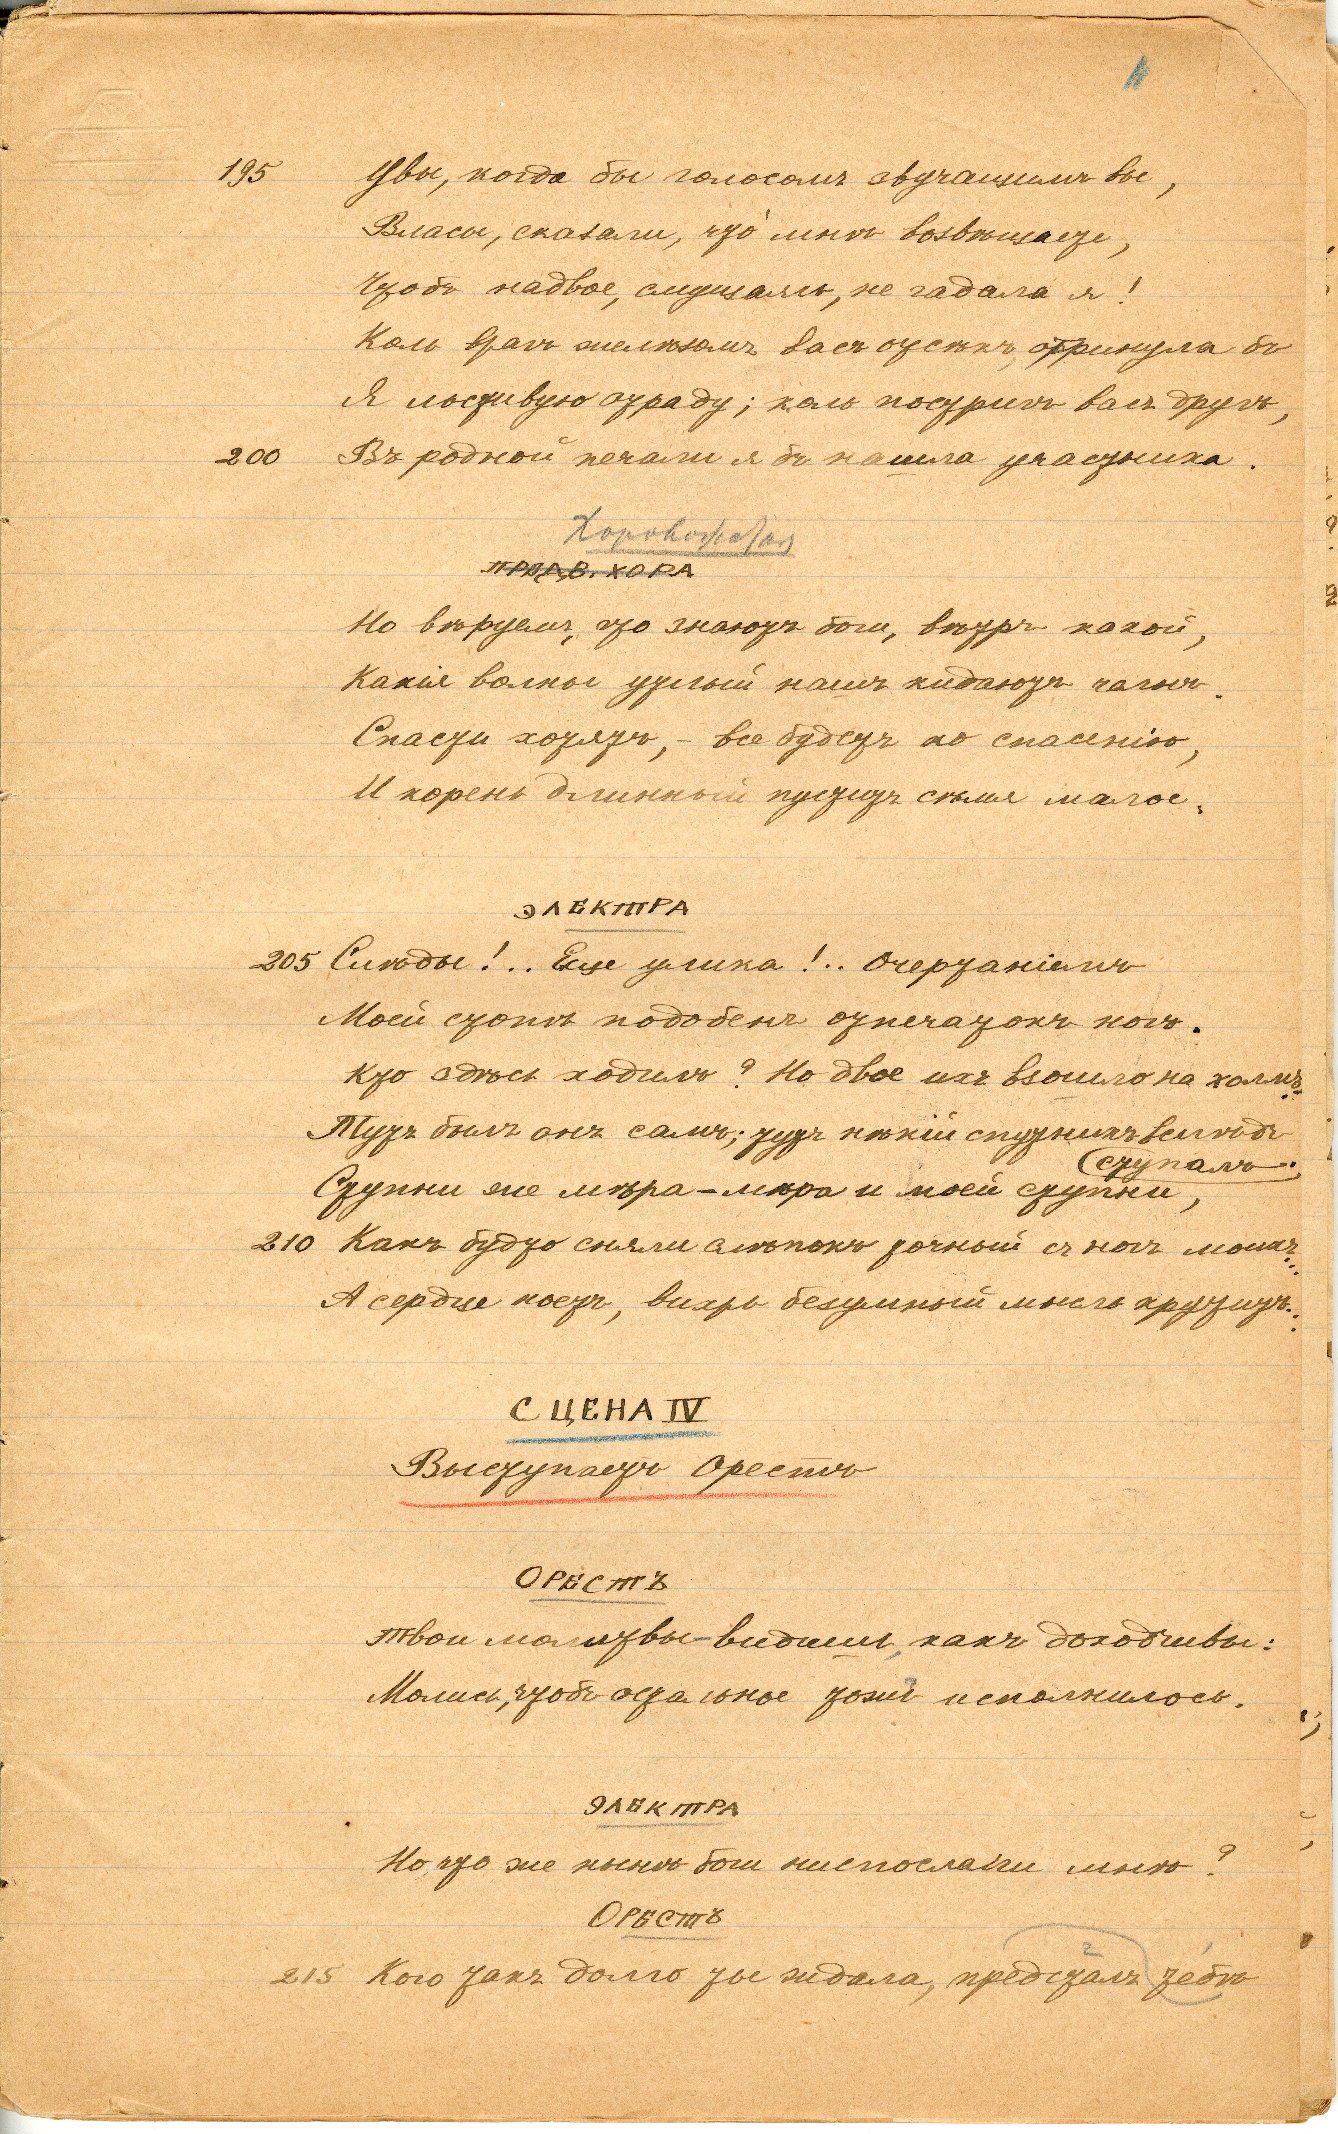 195 Увы, когда бы голосомъ звучащимъ вы,
Власы, сказали, что́ мнѣ возвѣщаете,
Чтобъ надвое, смущаясь, не гадала я!
Коль врагъ желѣзомъ васъ отсѣкъ, отринула бъ
Я льстивую отраду; коль постригъ васъ другъ,
200 Въ родной печали я бъ нашла участника.
Хоровожатая
ПРЕДВ. ХОРА
Но вѣруемъ, что знаютъ боги, вѣтръ какой,
Какія волны утлый нашъ кидаютъ челнъ.
Спасти хотятъ, – все будетъ ко спасенію,
И корень длинный пуститъ сѣмя малое.
ЭЛЕКТРА
205 Слѣды!.. Еще улика!.. Очертаніемъ
Моей стопѣ подобенъ отпечатокъ ногъ.
Кто здѣсь ходилъ? Но двое ихъ взошло на холмъ:
Тутъ былъ онъ самъ; тутъ нѣкій спутникъ вслѣдъ
(ступалъ.
Ступни же мѣра – мѣра и моей ступни,
210 Какъ будто сняли слѣпокъ точный съ ногъ моихъ...
А сердце ноетъ, вихрь безумный мысль крутитъ...
СЦЕНА IV
Выступаетъ Орестъ
ОРЕСТЪ
Твои молитвы – видишь, какъ доходчивы:
Молись, чтобъ остальное тожъ исполнилось.
ЭЛЕКТРА
Но что же нынѣ боги ниспослали мнѣ?
ОРЕСТЪ
215 Кого такъ долго ты ждала, предсталъ тебѣ